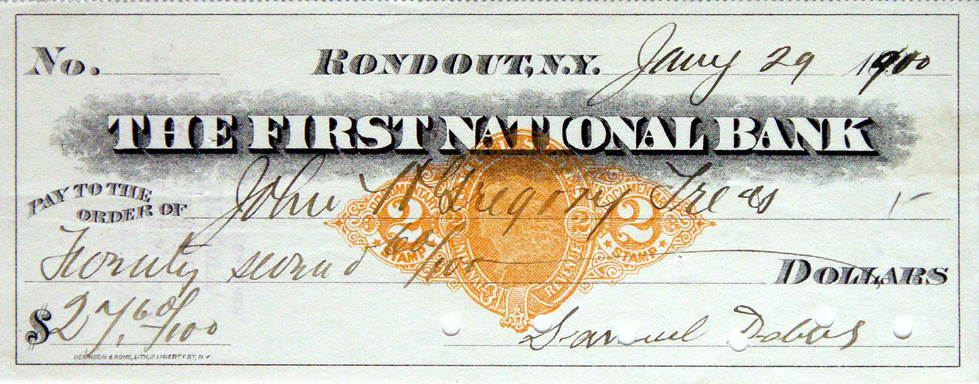 No. RONDOUT, N.Y. Jany 29 1900
THE FIRST NATIONAL BANK
PAY TO THE ORDER OF John N Gregory Treas
2 2
STAMP STAMP
60/100
DOLLARS
$27.60/100 Samuel
DENNISON & SONS, LITH, 2 LIBERTY ST, N.Y.